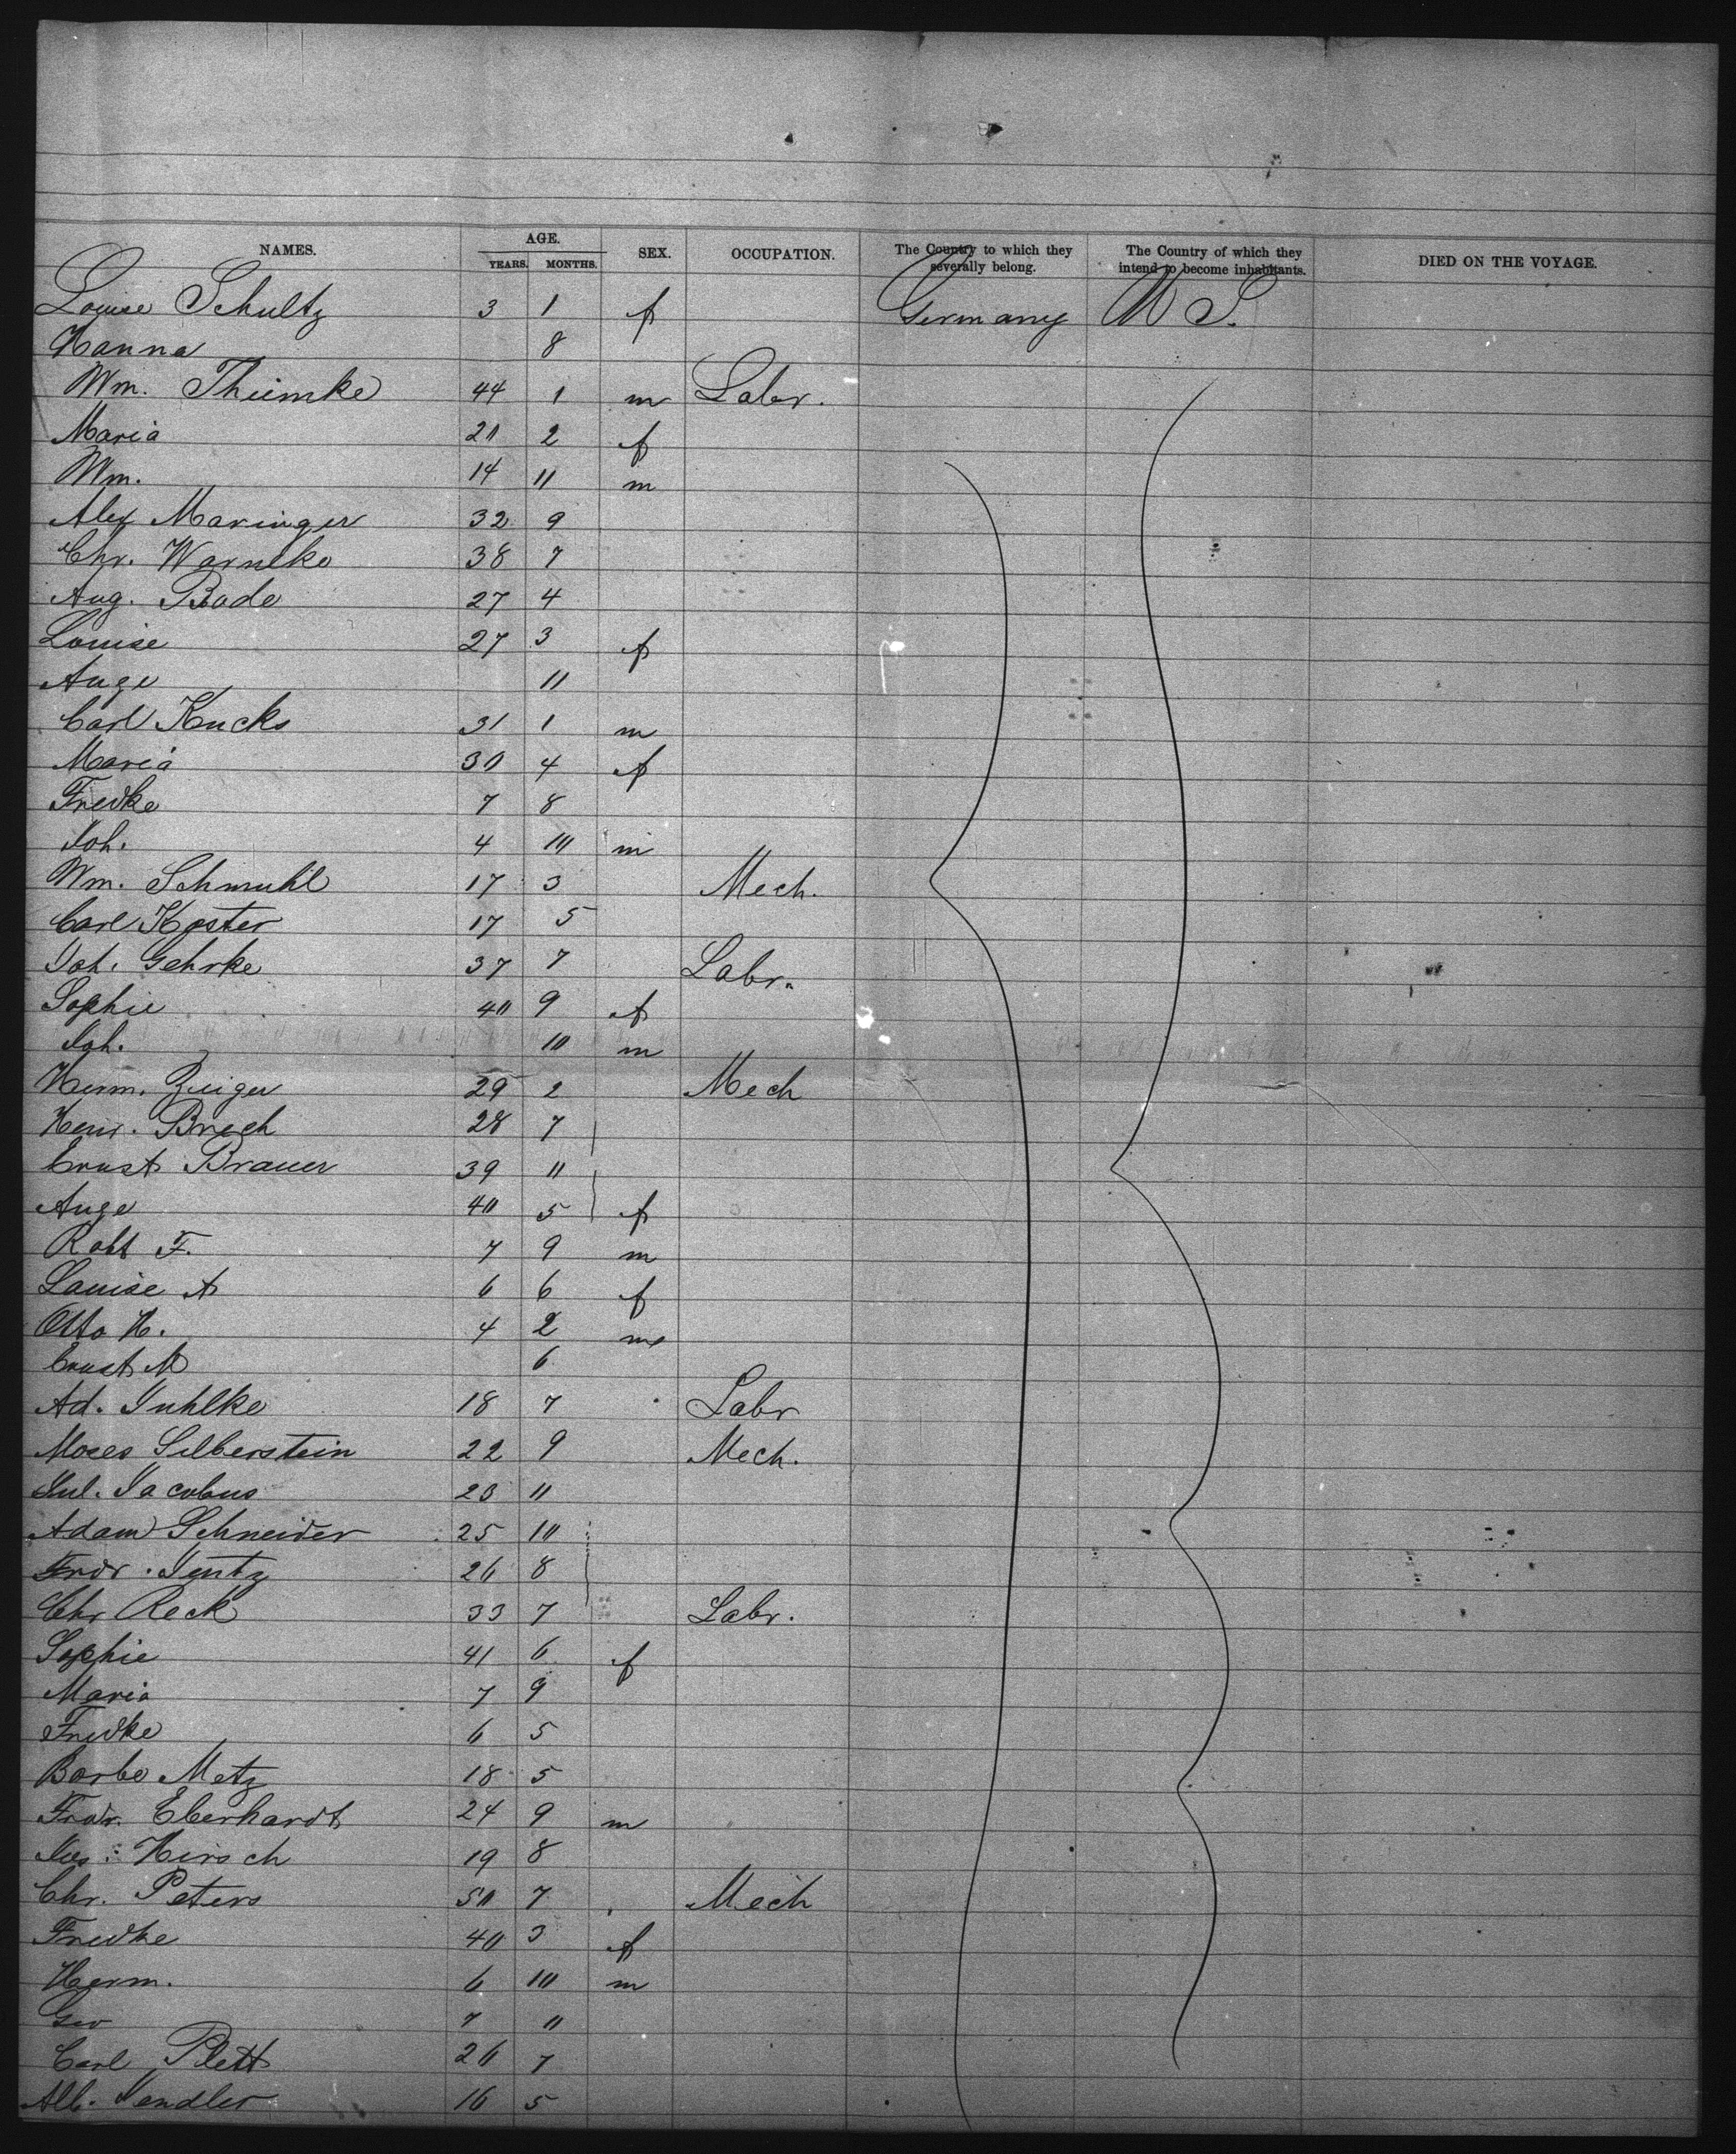 NAMES. AGE. SEX. OCCUPATION. The Country to which they severally belong. The Country of which they intend to become inhabitants. DIED ON THE VOYAGE.
YEARS. MONTHS.
Louise Schultz 3 1 f Germany U S.
Hanna 8
Wm. Thiemke 44 1 m Labr.
Maria 20 2 f
Wm. 14 11 m
Alex Maringer 32 9
Chr. Warneke 38 7
Aug. Bade 27 4
Louise 27 3 f
Auge 11
Carl Kucks 31 1 m
Maria 30 4 f
Fredke 7 8
Joh. 4 10 m
Wm. Schmuhl 17 3 Mech.
Carl Koster 17 5
Joh. Gehrke 37 7 Labr.
Sophie 40 9 f
Joh. 10 m
Herm. Zeiger 29 2 Mech
Henr. Brech 28 7
Ernst Brauer 39 11
Auge 40 5 f
Robt F. 7 9 m
Louise A 6 6 f
Otto H. 4 2 m
Ernst M 6
Ad. Juhlke 18 7 Labr
Moses Silberstein 22 9 Mech.
Jul. Jacobus 23 11
Adam Schneider 25 10
Fredr. Jentz 26 8
Chr Reck 33 7 Labr.
Sophie 41 6 f
Maria 7 9
Fredke 6 5
Barbe Metz 18 5
Fredr. Eberhardt 24 9 m
Jos: Hirsch 19 8
Chr. Peters 50 7 Mech
Fredke 40 3 f
Herm. 6 10 m
Geo 7 11
Carl Plett 26 7
Alb. Jendler 16 5